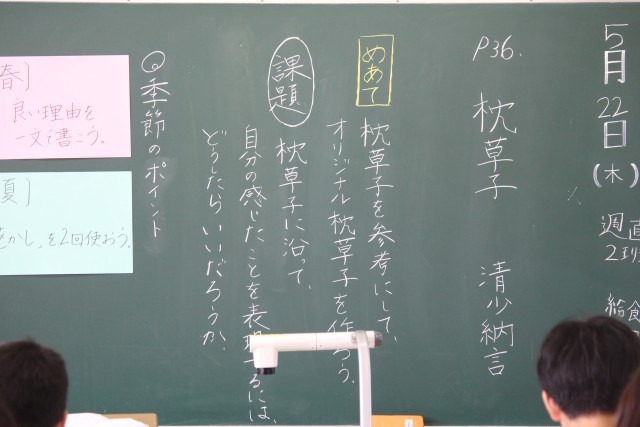 5月22日(木)
週直
給食
P36. 枕草子 清少納言
めあて 枕草子を参考にして、
オリジナル枕草子を作ろう。
課題 枕草子に沿って、
自分の感じたことを表現するには、
どうしたらいいだろうか。
◎季節のポイント
春〕
良い理由を
一文で書こう。
夏〕
をかし。を2回使おう。